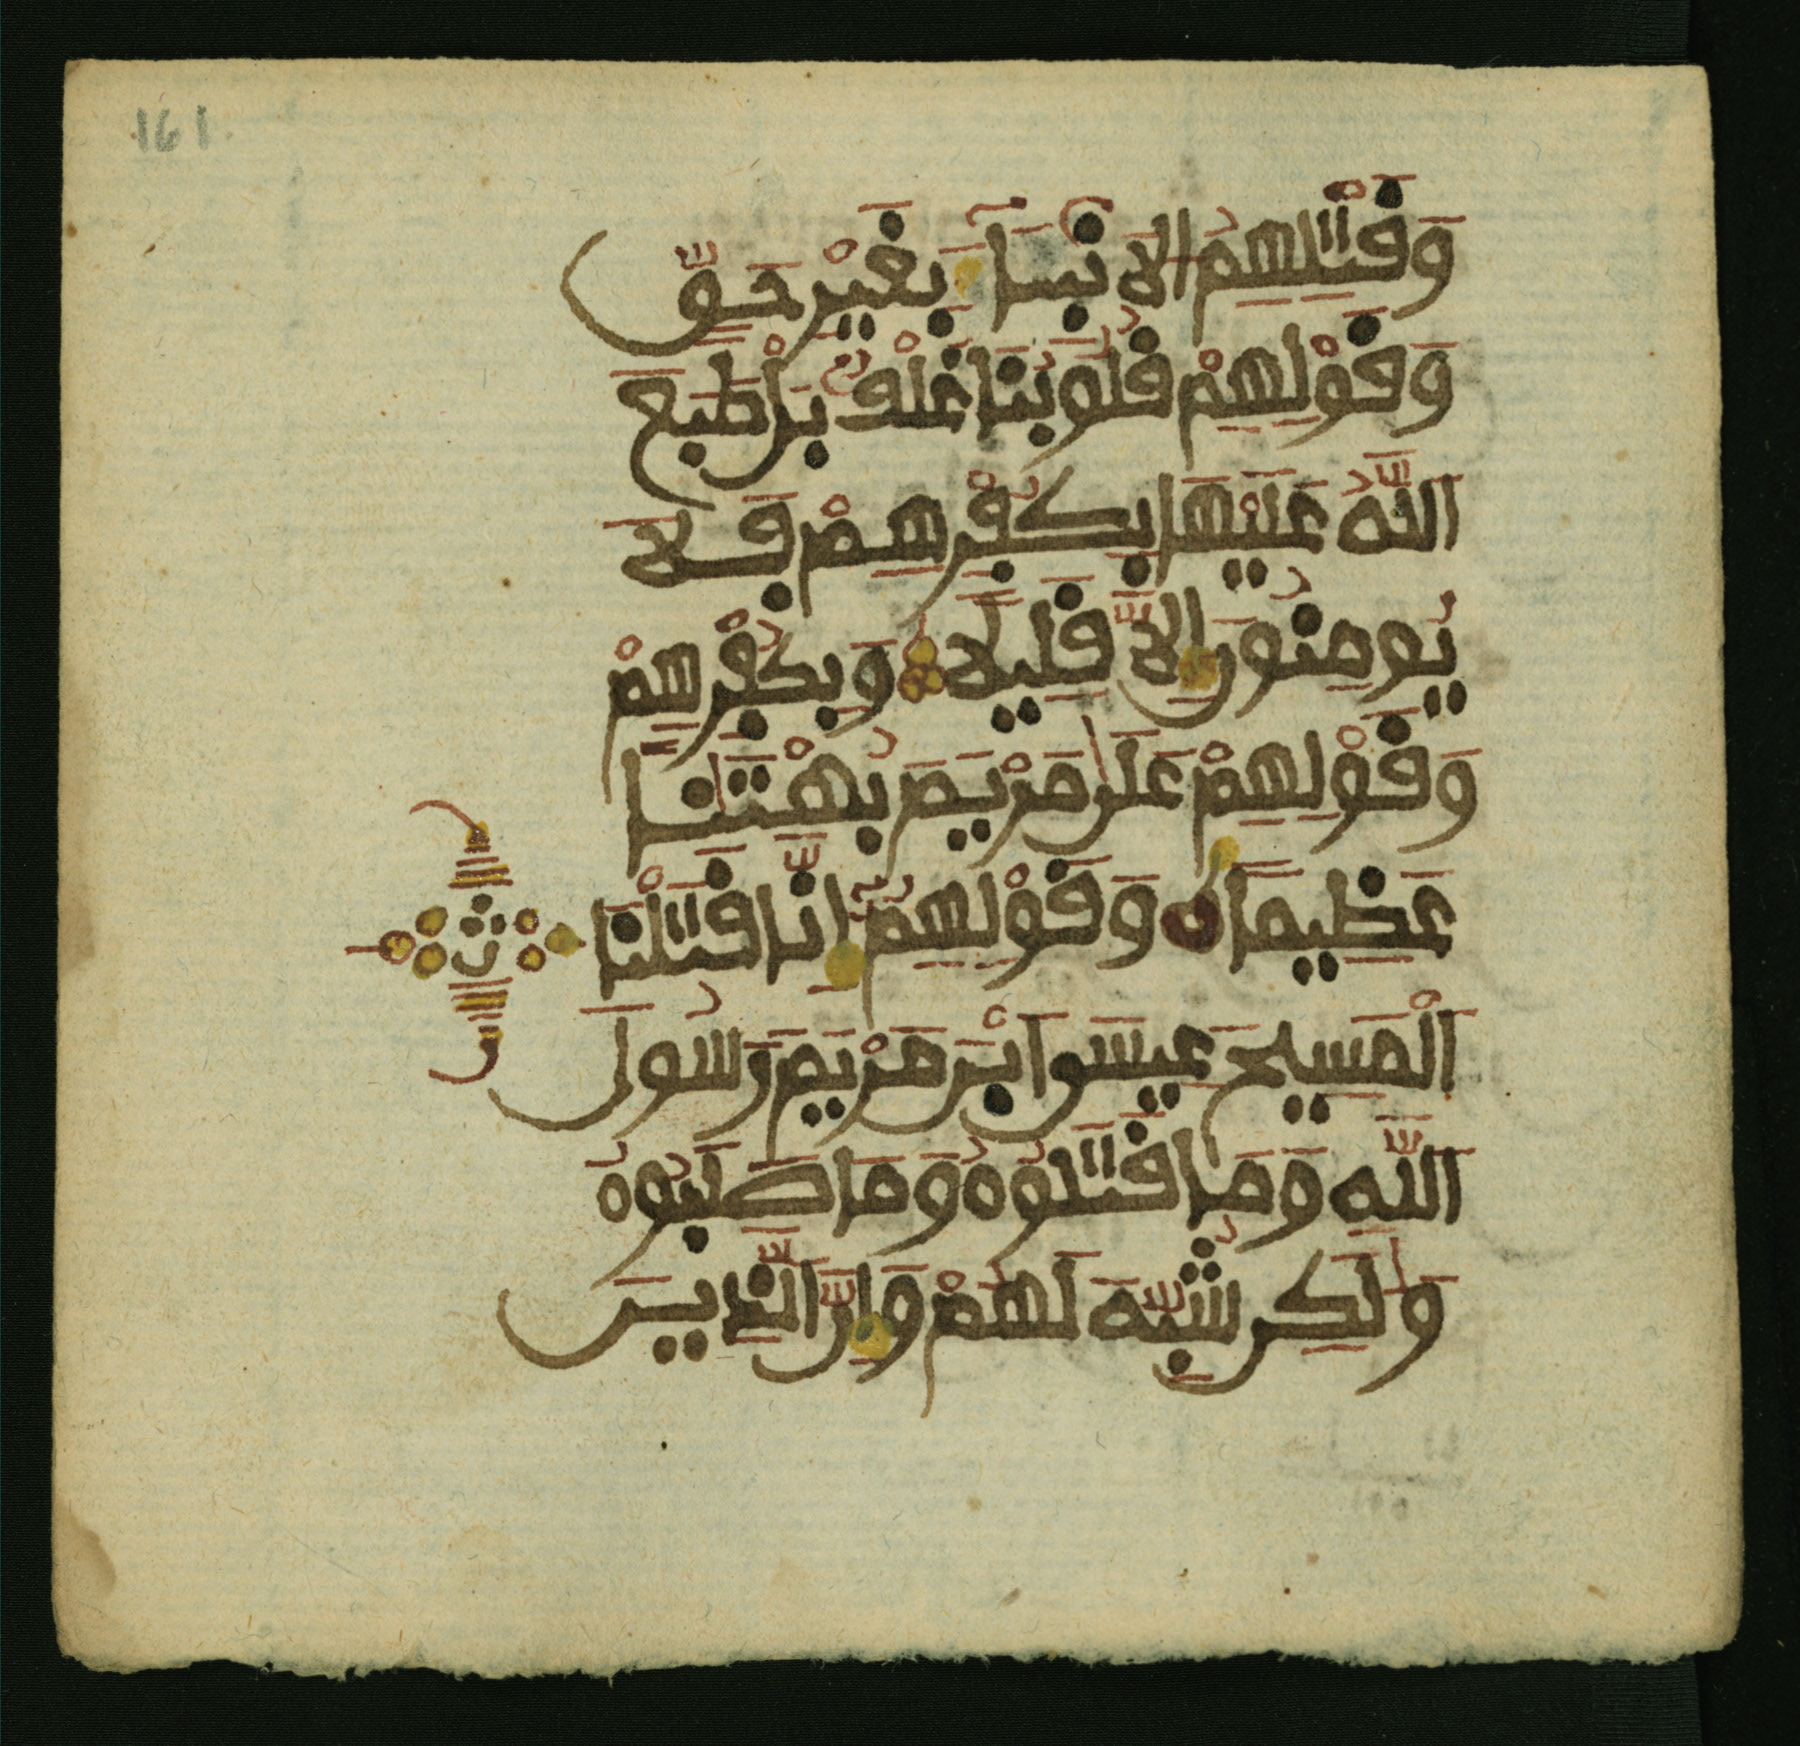 161
وَقَتْلِهِمُ الَانۢبِئَآءَ بِغَيْرِ حَقّٖ
وَقَوْلِهِمْ قُلُوبُنَا غُلْفُۢ بَلْ طَبَعَ
اَللَّهُ عَلَيْهَا بِكُفْرِهِمْ فَلَا
يُومِنُونَ إِلَّا قَلِيلاٗ وَبِكُفْرِهِمْ
وَقَوْلِهِمْ عَلَىٰ مَرْيَمَ بُهْتَٰناً
عَظِيماٗ وَقَوْلِهِمُۥٓ إِنَّا قَتَلْنَا
ث
اَلْمَسِيحَ عِيسَى اَبْنَ مَرْيَمَ رَسُولَ
اَللَّهِ وَمَا قَتَلُوهُ وَمَا صَلَبُوهُ
وَلَٰكِن شُبِّهَ لَهُمْ وَإِنَّ اَلذِينَ